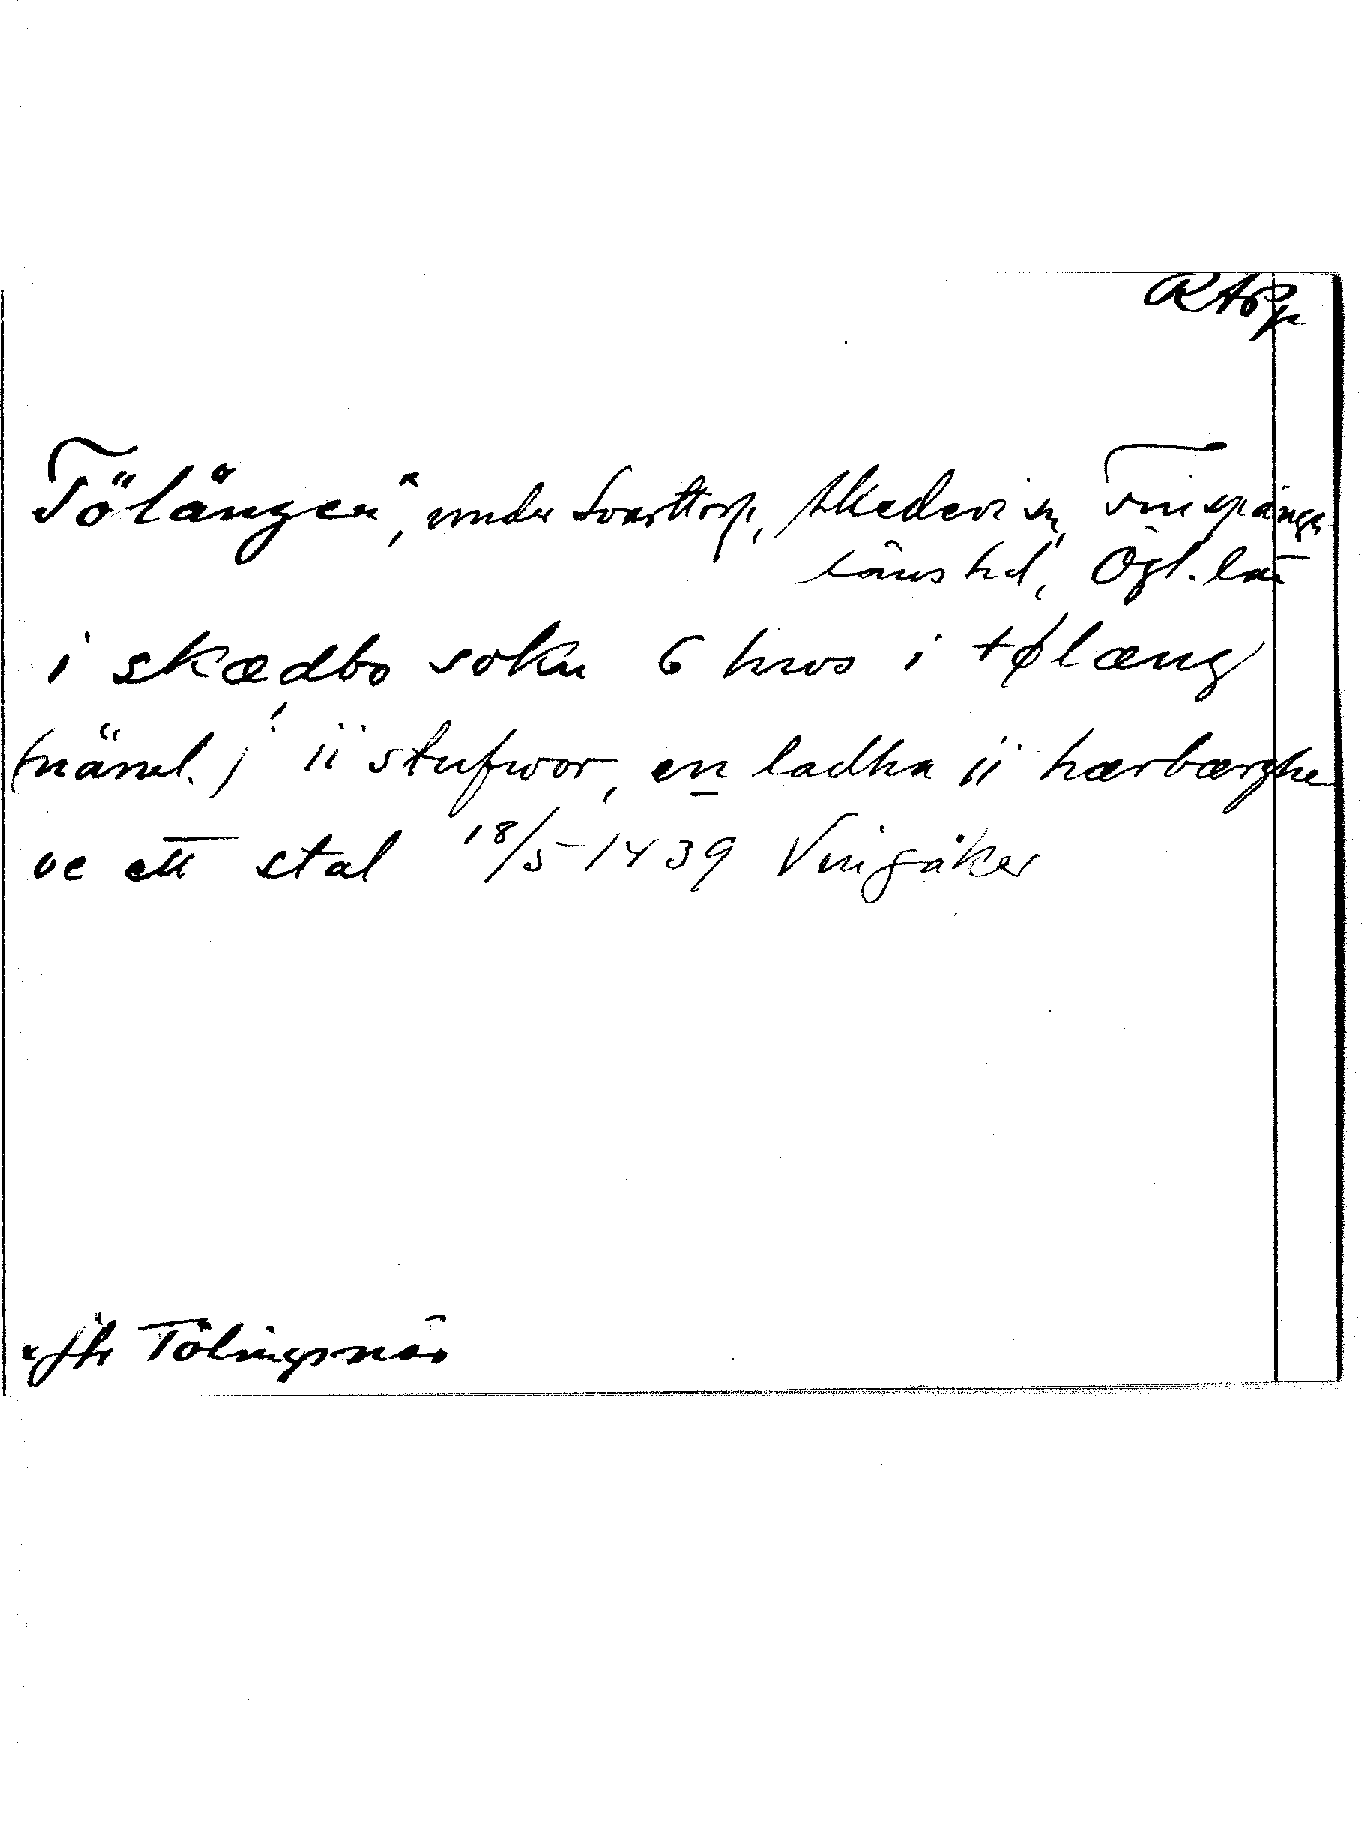 RApp
Tölången x, under Svarttorp, Skedevi sn, Finspånga
läns hd, Ögl. län
i skædbo sokn 6 hws i tølæng
(näml.) ii stufwor, en ladha ii hærbærghe
oc ett stal 18/5 1439 Vingåker
x jfr Tölingsnäs